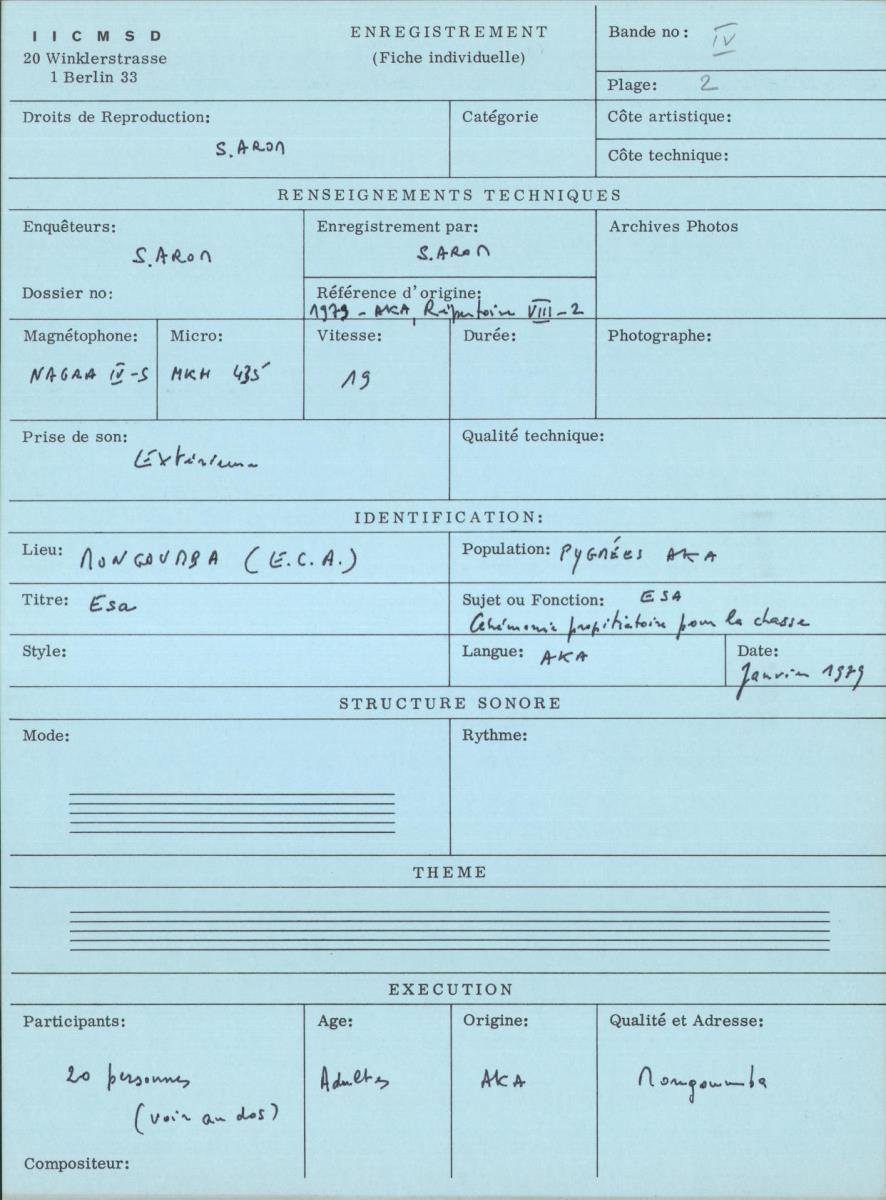 I I C M S D
20 Winklerstrasse
1 Berlin 33
ENREGISTREMENT
(Fiche individuelle)
Bande no: IV
Plage: 2
Droits de Reproduction:
S. AROM
Catégorie
Côte artistique:
Côte technique:
RENSEIGNEMENTS TECHNIQUES
Enquêteurs:
S. AROM
Dossier no:
Enregistrement par:
S. AROM
Référence d'origine:
1979 - AKA, Répertoire VIII - 2
Archives Photos
Magnétophone:
NAGRA IV-S
Micro:
MKH 435
Vitesse:
19
Durée:
Photographe:
Prise de son:
Extérieure
Qualité technique:
IDENTIFICATION:
Lieu: MONGOUMBA (E.C.A.)
Population: PYGMÉES AKA
Titre: Esa
Sujet ou Fonction: ESA
Cérémonie propitiatoire pour la chasse
Style:
Langue: AKA
Date:
Janvier 1979
STRUCTURE SONORE
Mode:
Rythme:
THEME
EXECUTION
Participants:
20 personnes
(voir au dos)
Age:
Adultes
Origine:
AKA
Qualité et Adresse:
Mongoumba
Compositeur: